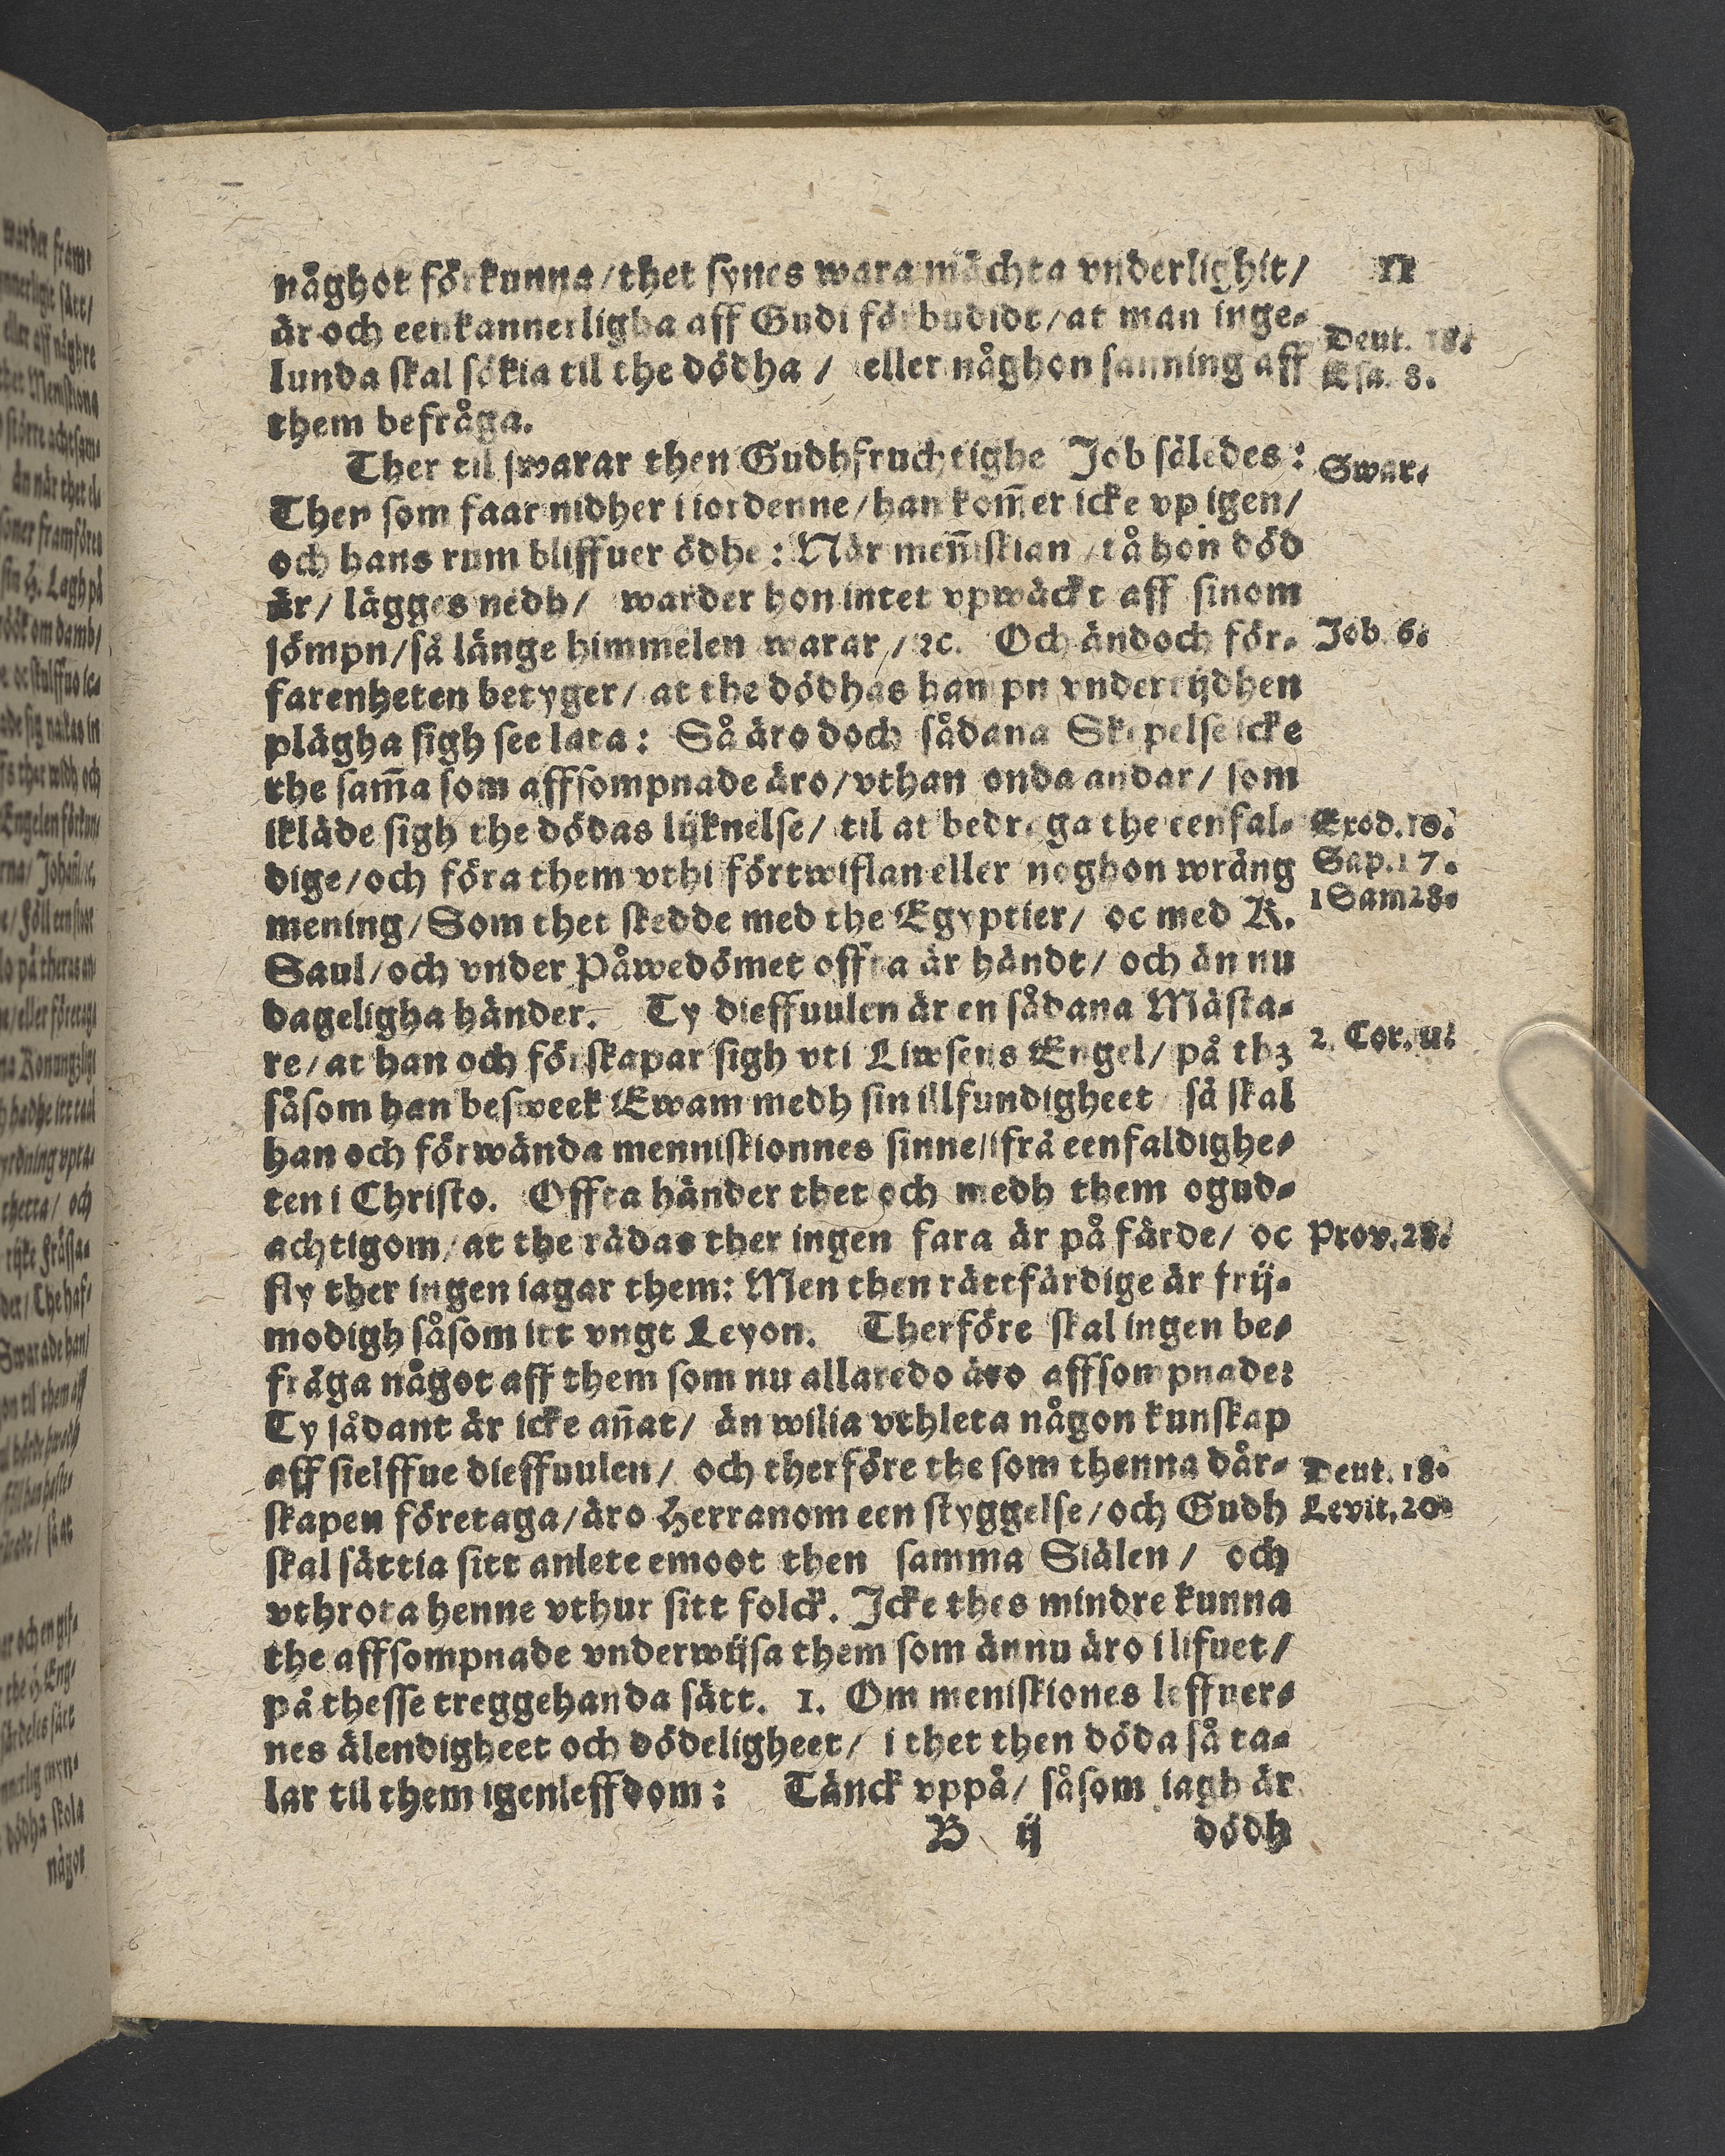 11
någhot förkunna/thet synes wara mächta vnderlighit/
är och eenkannerligha aff Gudi förbudidt/at man inge-
Deut. 18.
lunda skal sökia til the dödha / eller någhon sanning aff
Esa. 8.
them befråga.
Ther til swarar then Gudhfruchtighe Job således:
Swar.
Then som faar nidher i iordenne/han kom̃er icke vp igen/
och hans rum bliffuer ödhe: När men̄iskian /tå hon död
är/ lägges nedh/ warder hon intet vpwäckt aff sinom
sömpn/så länge himmelen warar/ ꝛc. Och ändoch för-
Job. 6.
farenheten betyger/ at the dödhas hampn vndertijdhen
plägha sigh see lata: Så äro doch sådana Skepelse icke
the sam̃a som affsompnade äro/vthan onda andar/ som
ikläde sigh the dödas lijknelse/ til at bedraga the eenfal-
Exod. 10.
dige/och föra them vthi förtwiflan eller noghon wrång
Sap. 17.
mening/Som thet skedde med the Egyptier/ oc med K.
1 Sam 28.
Saul/och vnder Påwedömet offta är händt/ och än nu
dageligha händer. Ty dieffuulen är en sådana Mästa-
re/at han och förskapar sigh vti Liwsens Engel/ på thꝫ
2. Cor. 11.
såsom han besweek Ewam medh sin illfundigheet så skal
han och förwända menniskionnes sinne/ifrå eenfaldighe-
ten i Christo. Offta händer thet och medh them ogud-
achtigom/at the rädas ther ingen fara är på färde/ oc
Prov. 28.
fly ther ingen iagar them: Men then rättfärdige är frij-
modigh såsom itt vngt Leyon. Therföre skal ingen be-
fråga något aff them som nu allaredo äro affsompnade:
Ty sådant är icke an̄at/ än wilia vthleta någon kunskap
aff sielffue dieffuulen/ och therföre the som thenna dår-
Deut. 18.
skapen företaga/äro Herranom een styggelse/och Gudh
Levit. 20.
skal sättia sitt anlete emoot then samma Siälen / och
vthrota henne vthur sitt folck. Icke thes mindre kunna
the affsompnade vnderwijsa them som ännu äro i lifuet/
på thesse treggehanda sätt. 1. Om meniskiones leffner-
nes älendigheet och dödeligheet/ i thet then döda så ta-
lar til them igenleffdom: Tänck vppå/ såsom iagh är
B ij dödh